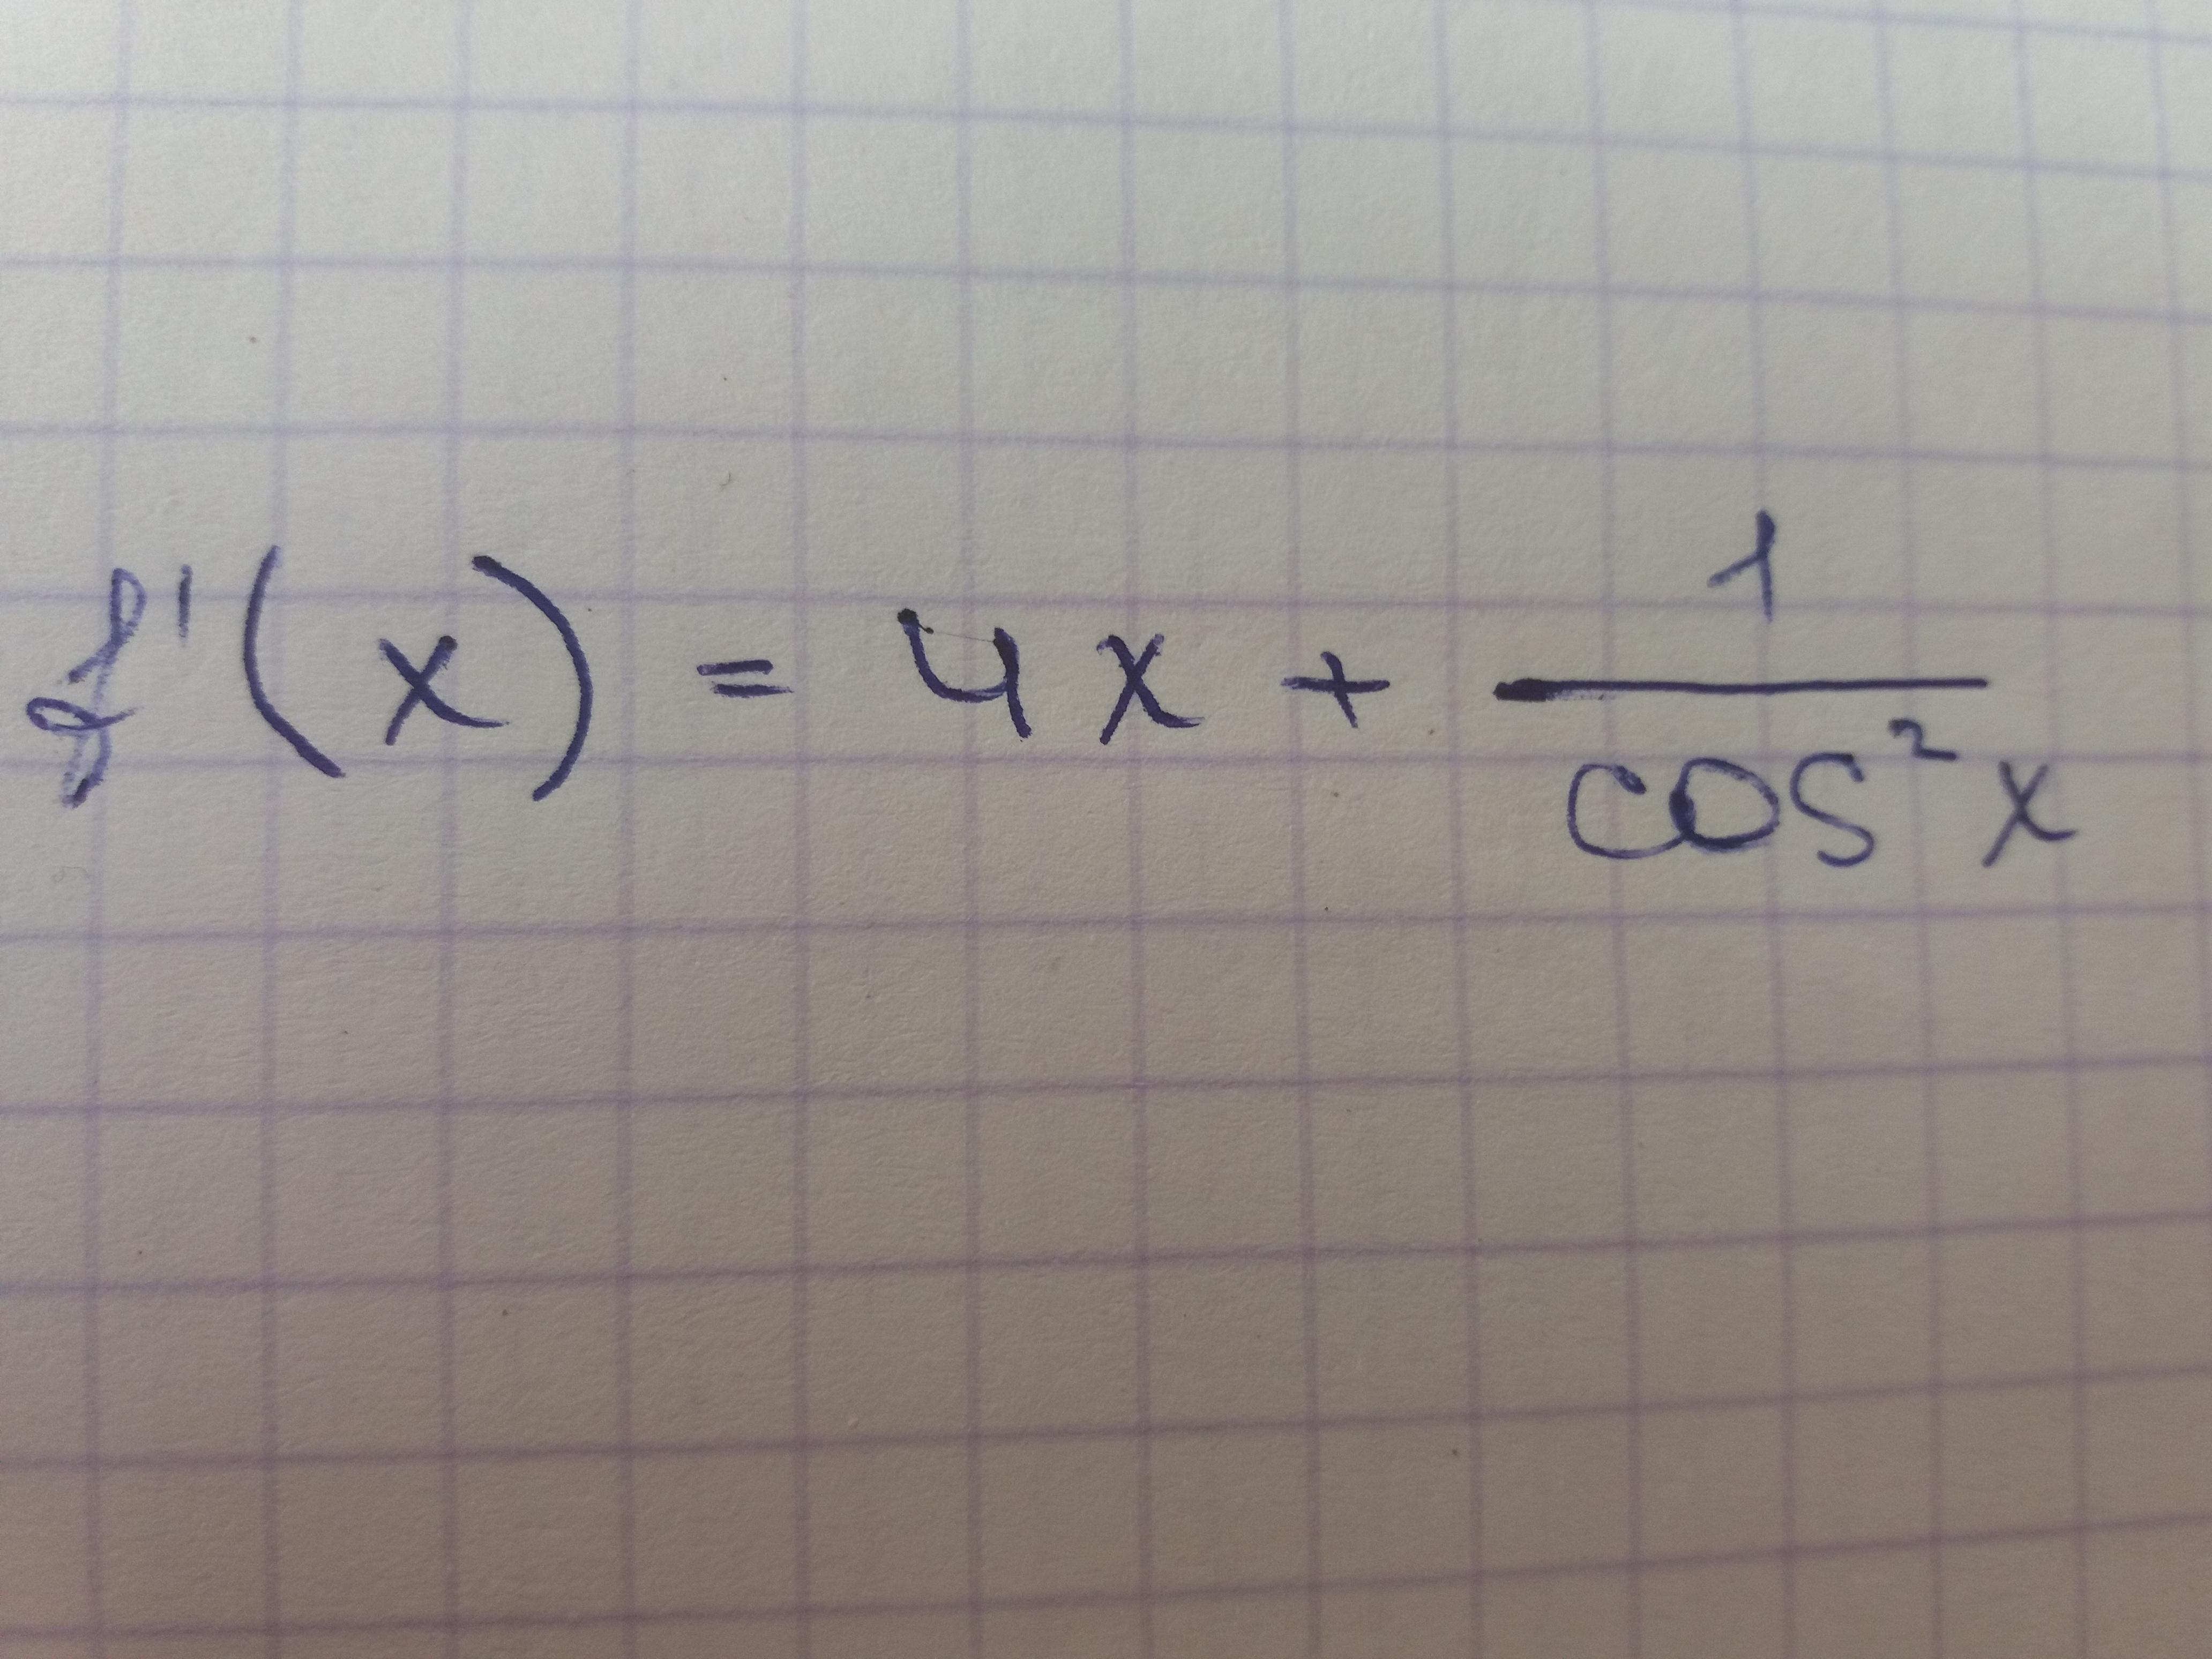 f'(x) = 4x + 1/cos²x